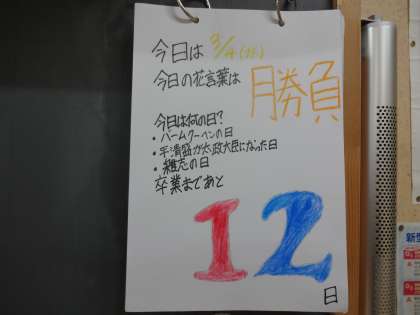 今日は 3/4(水)
今日の花言葉は 勝負
今日は何の日?
・バームクーヘンの日
・平清盛が太政大臣になった日
・雑誌の日
卒業まであと
12
日
新型